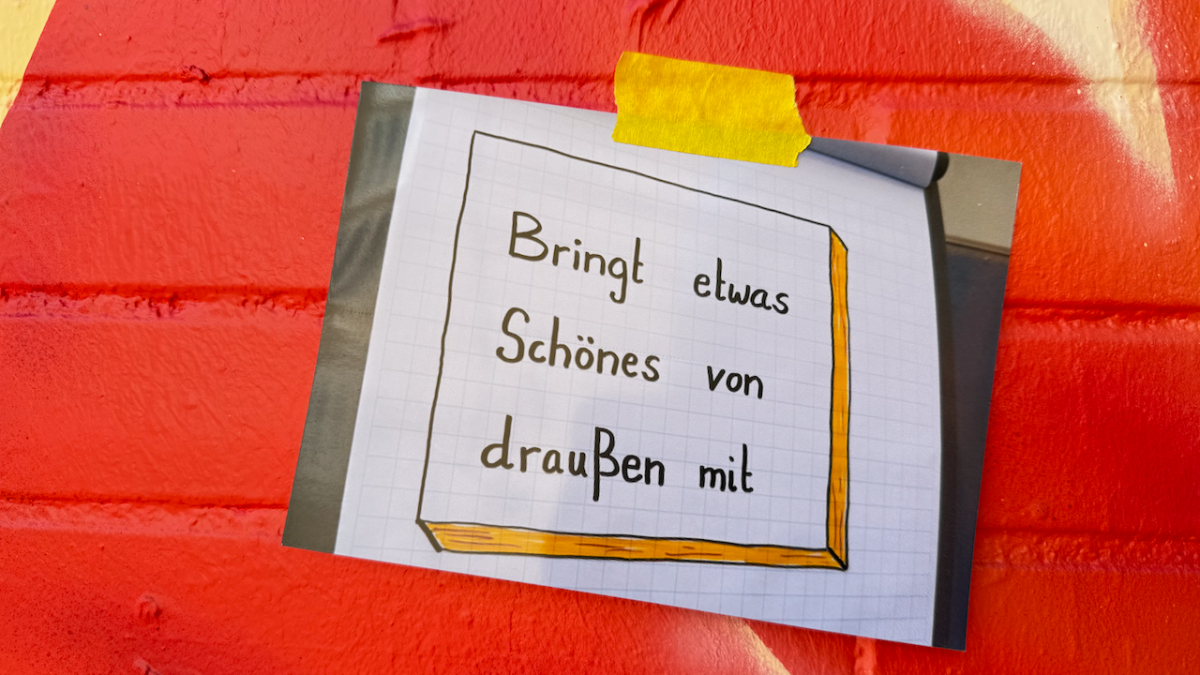 Bringt etwas
Schönes von
draußen mit